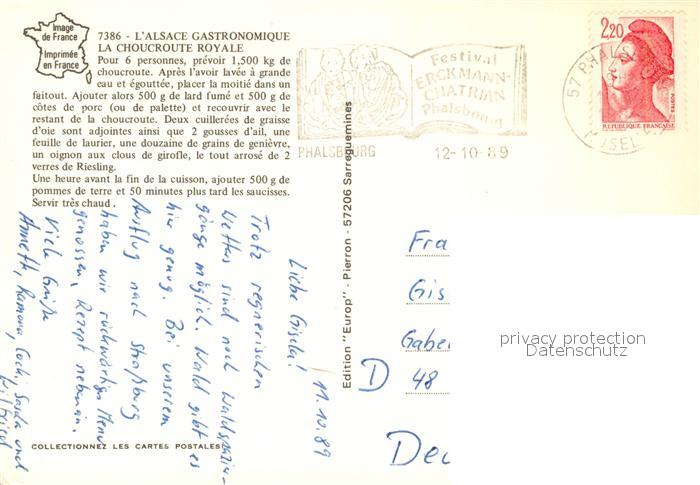 Image
de France
Imprimée
en France
7386 - L'ALSACE GASTRONOMIQUE
LA CHOUCROUTE ROYALE
Pour 6 personnes, prévoir 1,500 kg de
choucroute. Après l'avoir lavée à grande
eau et égouttée, placer la moitié dans un
faitout. Ajouter alors 500 g de lard fumé et 500 g de
côtes de porc (ou de palette) et recouvrir avec le
restant de la choucroute. Deux cuillerées de graisse
d'oie sont adjointes ainsi que 2 gousses d'ail, une
feuille de laurier, une douzaine de grains de genièvre,
un oignon aux clous de girofle, le tout arrosé de 2
verres de Riesling.
Une heure avant la fin de la cuisson, ajouter 500 g de
pommes de terre et 50 minutes plus tard les saucisses.
Servir très chaud .
Festival
ERCKMANN-
CHATRIAN
Phalsbourg
PHALSBOURG 12-10-89
2,20
REPUBLIQUE FRANÇAISE
POSTES
57 PHALS
MOSEL
Edition "Europ" - Pierron - 57206 Sarreguemines
11.10.89
Liebe Gisela!
Trotz regnerischen
Wetters sind noch Waldspazier-
gänge möglich. Wald gibt es
hier genug. Bei unserem
Ausflug nach Straßburg
haben wir rückwärtiges Menu
genossen, Rezept nebenan.
Viele Grüße
Annette, Ramona, und
Wilfried
Fra
Gis
Gabe
D 48
Deu
privacy protection
Datenschutz
COLLECTIONNEZ LES CARTES POSTALES